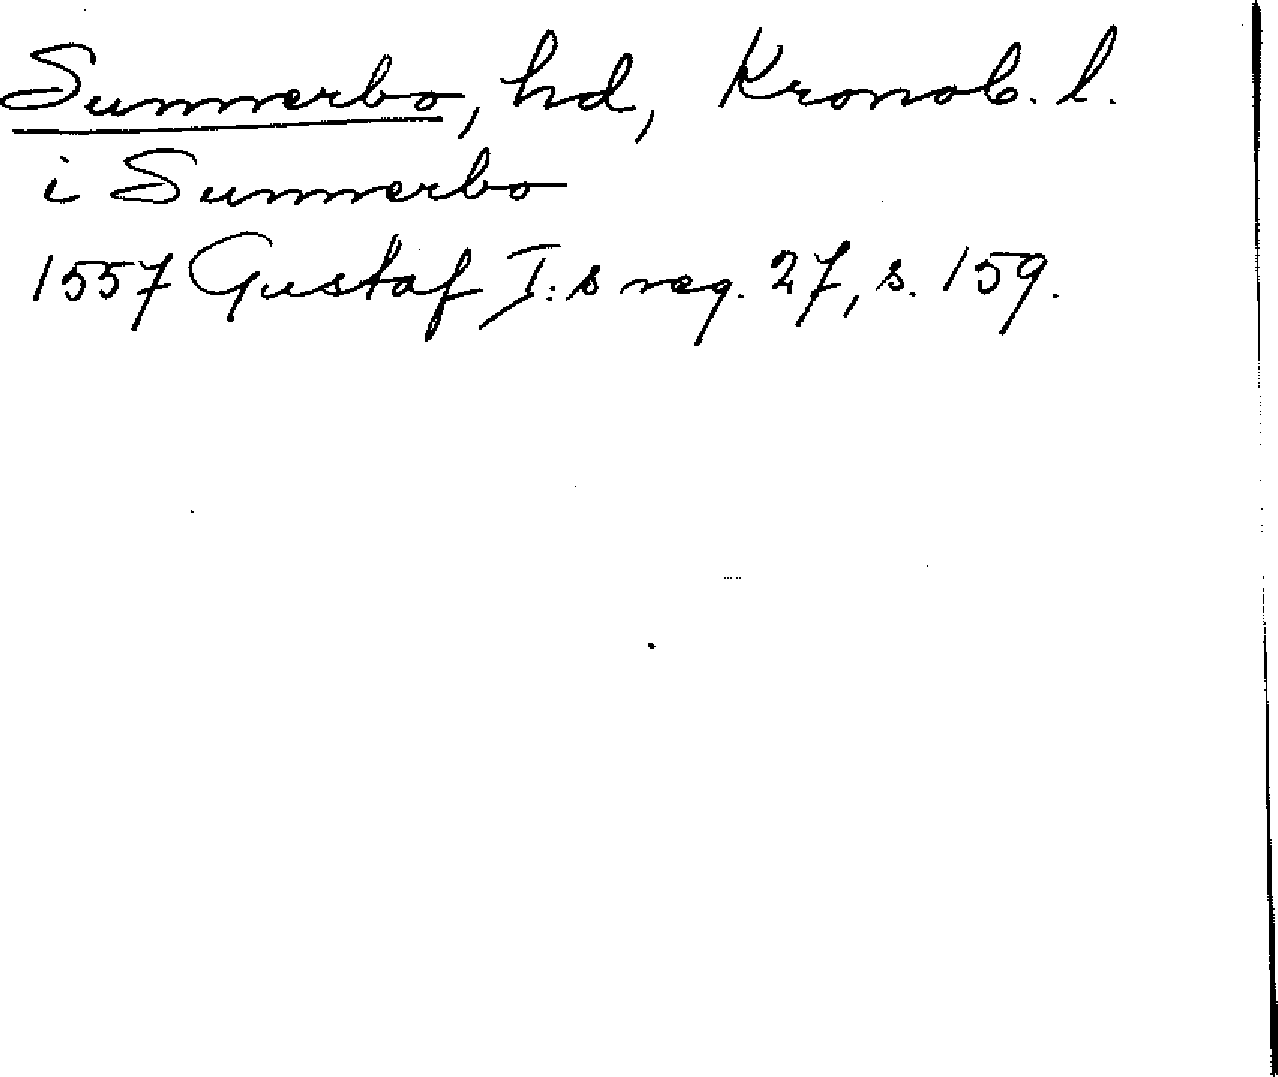 Sunnerbo, hd, Kronob. l.
i Sunnerbo
1557 Gustaf I:s reg. 27, s. 159.